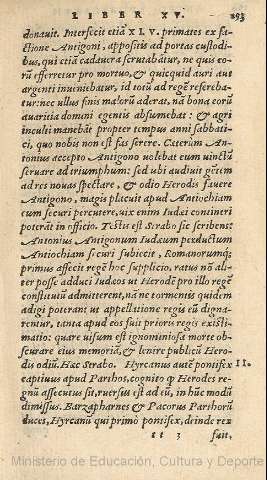 LIBER XV. 293
donauit. Interfecit etiã XLV. primates ex fa-
ctione Antigoni, appositis ad portas custodi-
bus, qui etiã cadauera scrutabãtur, ne quis eo-
rũ efferretur pro mortuo, & quicquid auri aut
argenti inueniebatur, id totũ ad regẽ refereba-
tur: nec ullus finis malorũ aderat, nã bona eorũ
auaritia domini egentis absumebat: & agri
inculti manebãt propter tempus anni sabbati-
ci, quo nobis non est fas serere. Cæterùm An-
tonius accepto Antigono uolebat eum uinctũ
seruare ad triumphum: sed ubi audiuit gẽtem
ad res nouas spectare, & odio Herodis fauere
Antigono, magis placuit apud Antiochiam
eum securi percutere, uix enim Iudæi contineri
poterãt in officio. Testis est Strabo sic scribens:
Antonius Antigonum Iudæum perductum
Antiochiam securi subiecit, Romanorumq́;
primus affecit regẽ hoc supplicio, ratus nõ ali-
ter posse adduci Iudæos ut Herodẽ pro illo regẽ
constitutũ admitterent, nã ne tormentis quidem
adigi poterant ut appellatione regis eũ digna-
rentur, tanta apud eos fuit prioris regis existi-
matio: quare uisum est ignominiosa morte ob-
scurare eius memoriã, & lenire publicũ Hero-
dis odiũ. Hæc Strabo. Hyrcanus autẽ pontifex II.
captiuus apud Parthos, cognito q̃ Herodes re-
gnũ assecutus sit, reuersus est ad eũ, in hũc modũ
dimissus. Barzapharnes & Pacorus Parthorũ
duces, Hyrcanũ qui primò pontifex, deinde rex
tt 3 fuit,
Ministerio de Educación, Cultura y Deporte